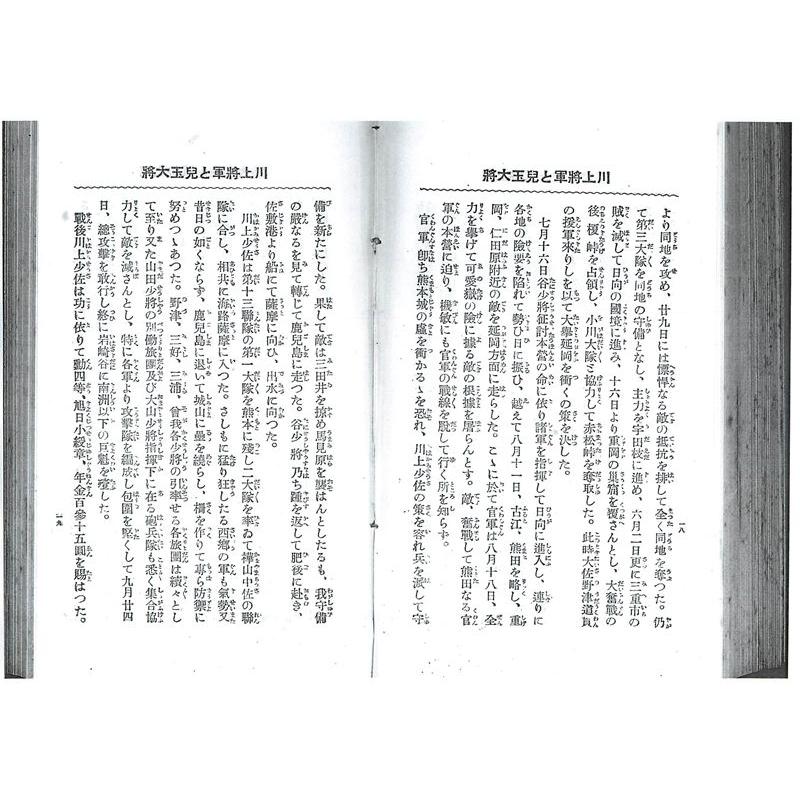 川上將軍と兒玉大將
一八
より同地を攻め、廿九日には慓悍なる敵の抵抗を排して全く同地を奪つた。仍
て第三大隊を同地の守備となし、主力を宇田枝に進め、六月二日更に三重市の
賊を滅して日向の國境に進み、十六日より重岡の巢窟を覆さんとし、大奮戰の
後榎峠を占領し、小川大隊と協力して赤松峠を奪取した。此時大佐野津道貫
の援軍來りしを以て大擧延岡を衝くの策を決した。
七月十六日谷少將征討本營の命に依り諸軍を指揮して日向に進入し、連りに
各地の險要を陷れて勢ひ日に振ひ、越えて八月十一日、古江、熊田を略し、重
岡、仁田原附近の敵を延岡方面に走らした。こゝに於て官軍は八月十八日、全
力を擧げて可愛嶽の險に據る敵の根據を屠らんとす。敵、奮戰して熊田なる官
軍の本營に迫り、機敏にも官軍の戰線を脫して行く所を知らず。
官軍、卽ち熊本城の虛を衝かるゝを恐れ、川上少佐の策を容れ兵を減して守
川上將軍と兒玉大將
一九
備を新たにした。果して敵は三田井を掠め馬見原を襲はんとしたるも、我守備
の嚴なるを見て轉じて鹿兒島に走つた。谷少將乃ち踵を返して肥後に赴き、
佐敷港より船にて薩摩に向ひ、出水に向つた。
川上少佐は第十三聯隊の第一大隊を熊本に殘し二大隊を率ゐて樺山中佐の聯
隊に合し、相共に海路薩摩に入つた。さしもに猛り狂したる西鄕の軍も氣勢又
昔日の如くならず、鹿兒島に退いて城山に壘を繞らし、柵を作りて專ら防禦に
努めつゝあつた。野津、三好、三浦、曾我各少將の引率せる各旅團は續々とし
て至り又た山田少將の別働旅團及び大山少將指揮下に在る砲兵隊も悉く集合協
力して敵を滅さんとし、特に各軍より攻擊隊を編成し包圍を堅くして九月廿四
日、總攻擊を敢行し終に岩崎谷に南洲以下の巨魁を殪した。
戰後川上少佐は功に依りて勳四等、旭日小綬章、年金百參十五圓を賜はつた。